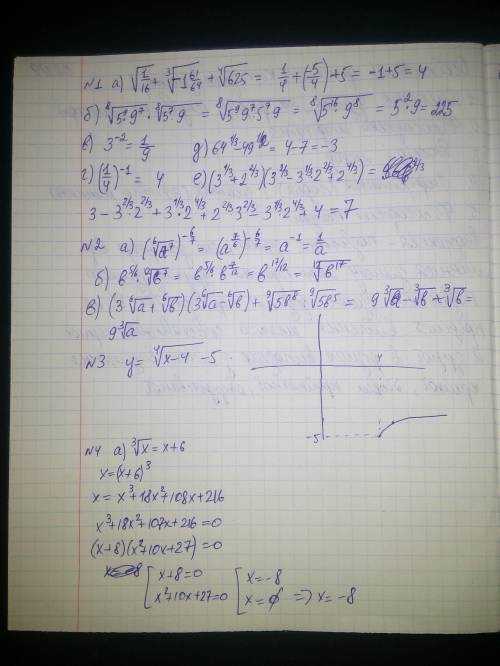 №1 а) √(1/16) + ∛(-1 61/64) + ∜625 = 1/4 + (-5/4) + 5 = -1+5 = 4
б) ⁸√(5⁹9⁷) · ⁸√(5⁷9) = ⁸√(5⁹9⁷5⁷9) = ⁸√(5¹⁶9⁸) = 5²·9 = 225
в) 3⁻² = 1/9 д) 64^(1/3) - 49^(1/2) = 4-7 = -3
г) (1/4)⁻¹ = 4 е) (3^(1/3)+2^(2/3))(3^(2/3) - 3^(1/3)2^(2/3)+2^(4/3)) =
3 - 3^(2/3)·2^(2/3) + 3^(1/3)·2^(4/3) + 2^(2/3)3^(2/3) - 3^(1/3)·2^(4/3) + 4 = 7
№2 а) (⁶√a⁷)^(-6/7) = (a^(7/6))^(-6/7) = a⁻¹ = 1/a
б) в^(5/6) · ¹²√в⁷ = в^(5/6) в^(7/12) = в^(17/12) = ¹²√в¹⁷
в) (3⁶√a+⁶√в)(3⁶√a-⁶√в) + ⁹√5в⁸ : ⁹√5в⁵ = 9∛a - ∛в + ∛в =
9∛a
№3 y = ∜(x-4) - 5
4
-5
№4 а) ∛x = x+6
x = (x+6)³
x = x³+18x²+108x+216
x³+18x²+107x+216=0
(x+8)(x²+10x+27)=0
[x+8=0 [x=-8
[x²+10x+27=0 [x=∅ => x=-8